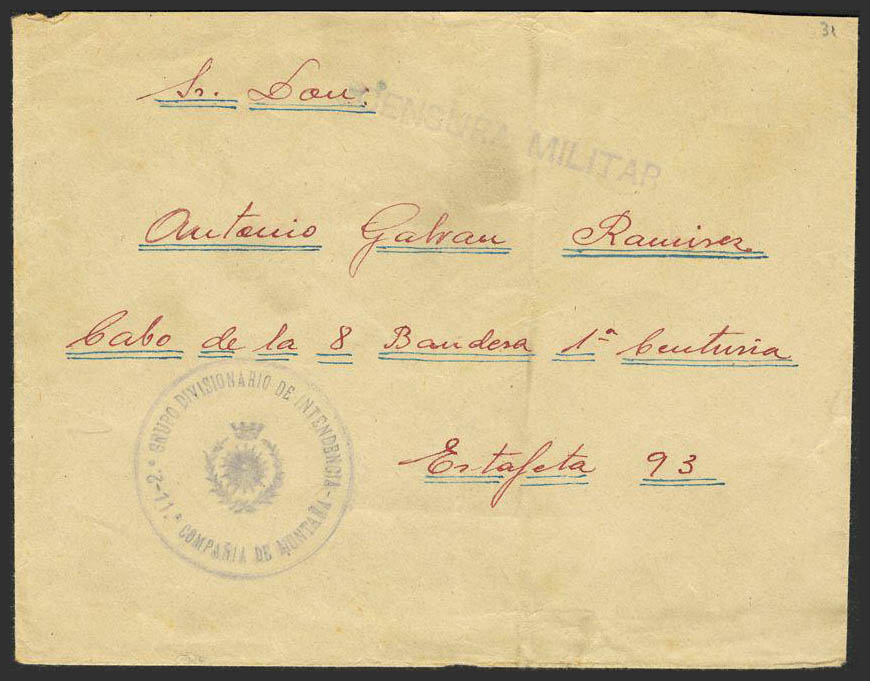 31
Sr. Don:
CENSURA MILITAR
Antonio Galvan Ramirez
Cabo de la 8 Bandera 1ª Centuria
Estafeta 93
2.º GRUPO DIVISIONARIO DE INTENDENCIA
11.ª COMPAÑIA DE MONTAÑA